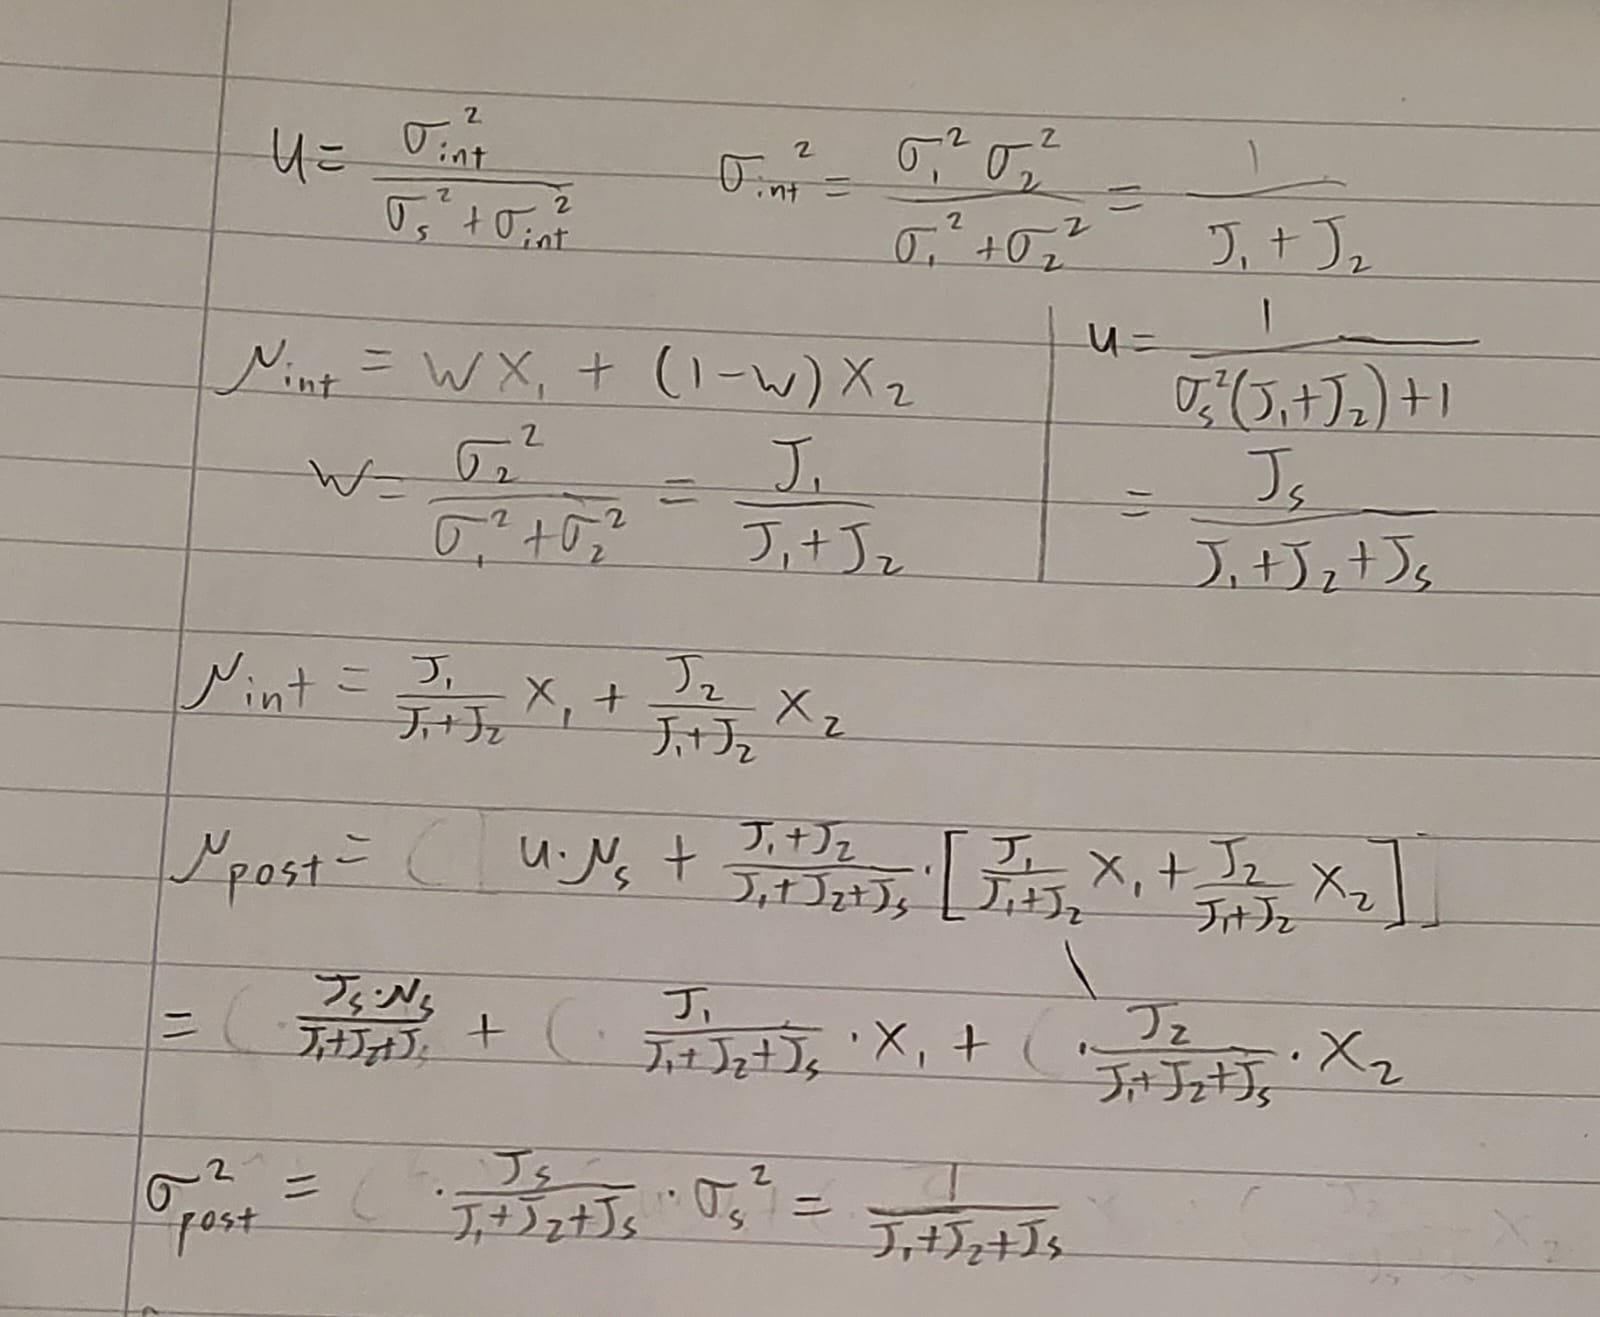 u = σ_int² / (σ_s² + σ_int²)    σ_int² = σ₁² σ₂² / (σ₁² + σ₂²) = 1 / (J₁ + J₂)
μ_int = w x₁ + (1-w) x₂
w = σ₂² / (σ₁² + σ₂²) = J₁ / (J₁ + J₂)
u = 1 / (σ_s²(J₁+J₂) + 1)
= J_s / (J₁ + J₂ + J_s)
μ_int = J₁/(J₁+J₂) x₁ + J₂/(J₁+J₂) x₂
μ_post = u·μ_s + (J₁+J₂)/(J₁+J₂+J_s) · [J₁/(J₁+J₂) x₁ + J₂/(J₁+J₂) x₂]
= J_s·μ_s/(J₁+J₂+J_s) + J₁/(J₁+J₂+J_s) · x₁ + J₂/(J₁+J₂+J_s) · x₂
σ_post² = J_s/(J₁+J₂+J_s) · σ_s² = 1/(J₁+J₂+J_s)